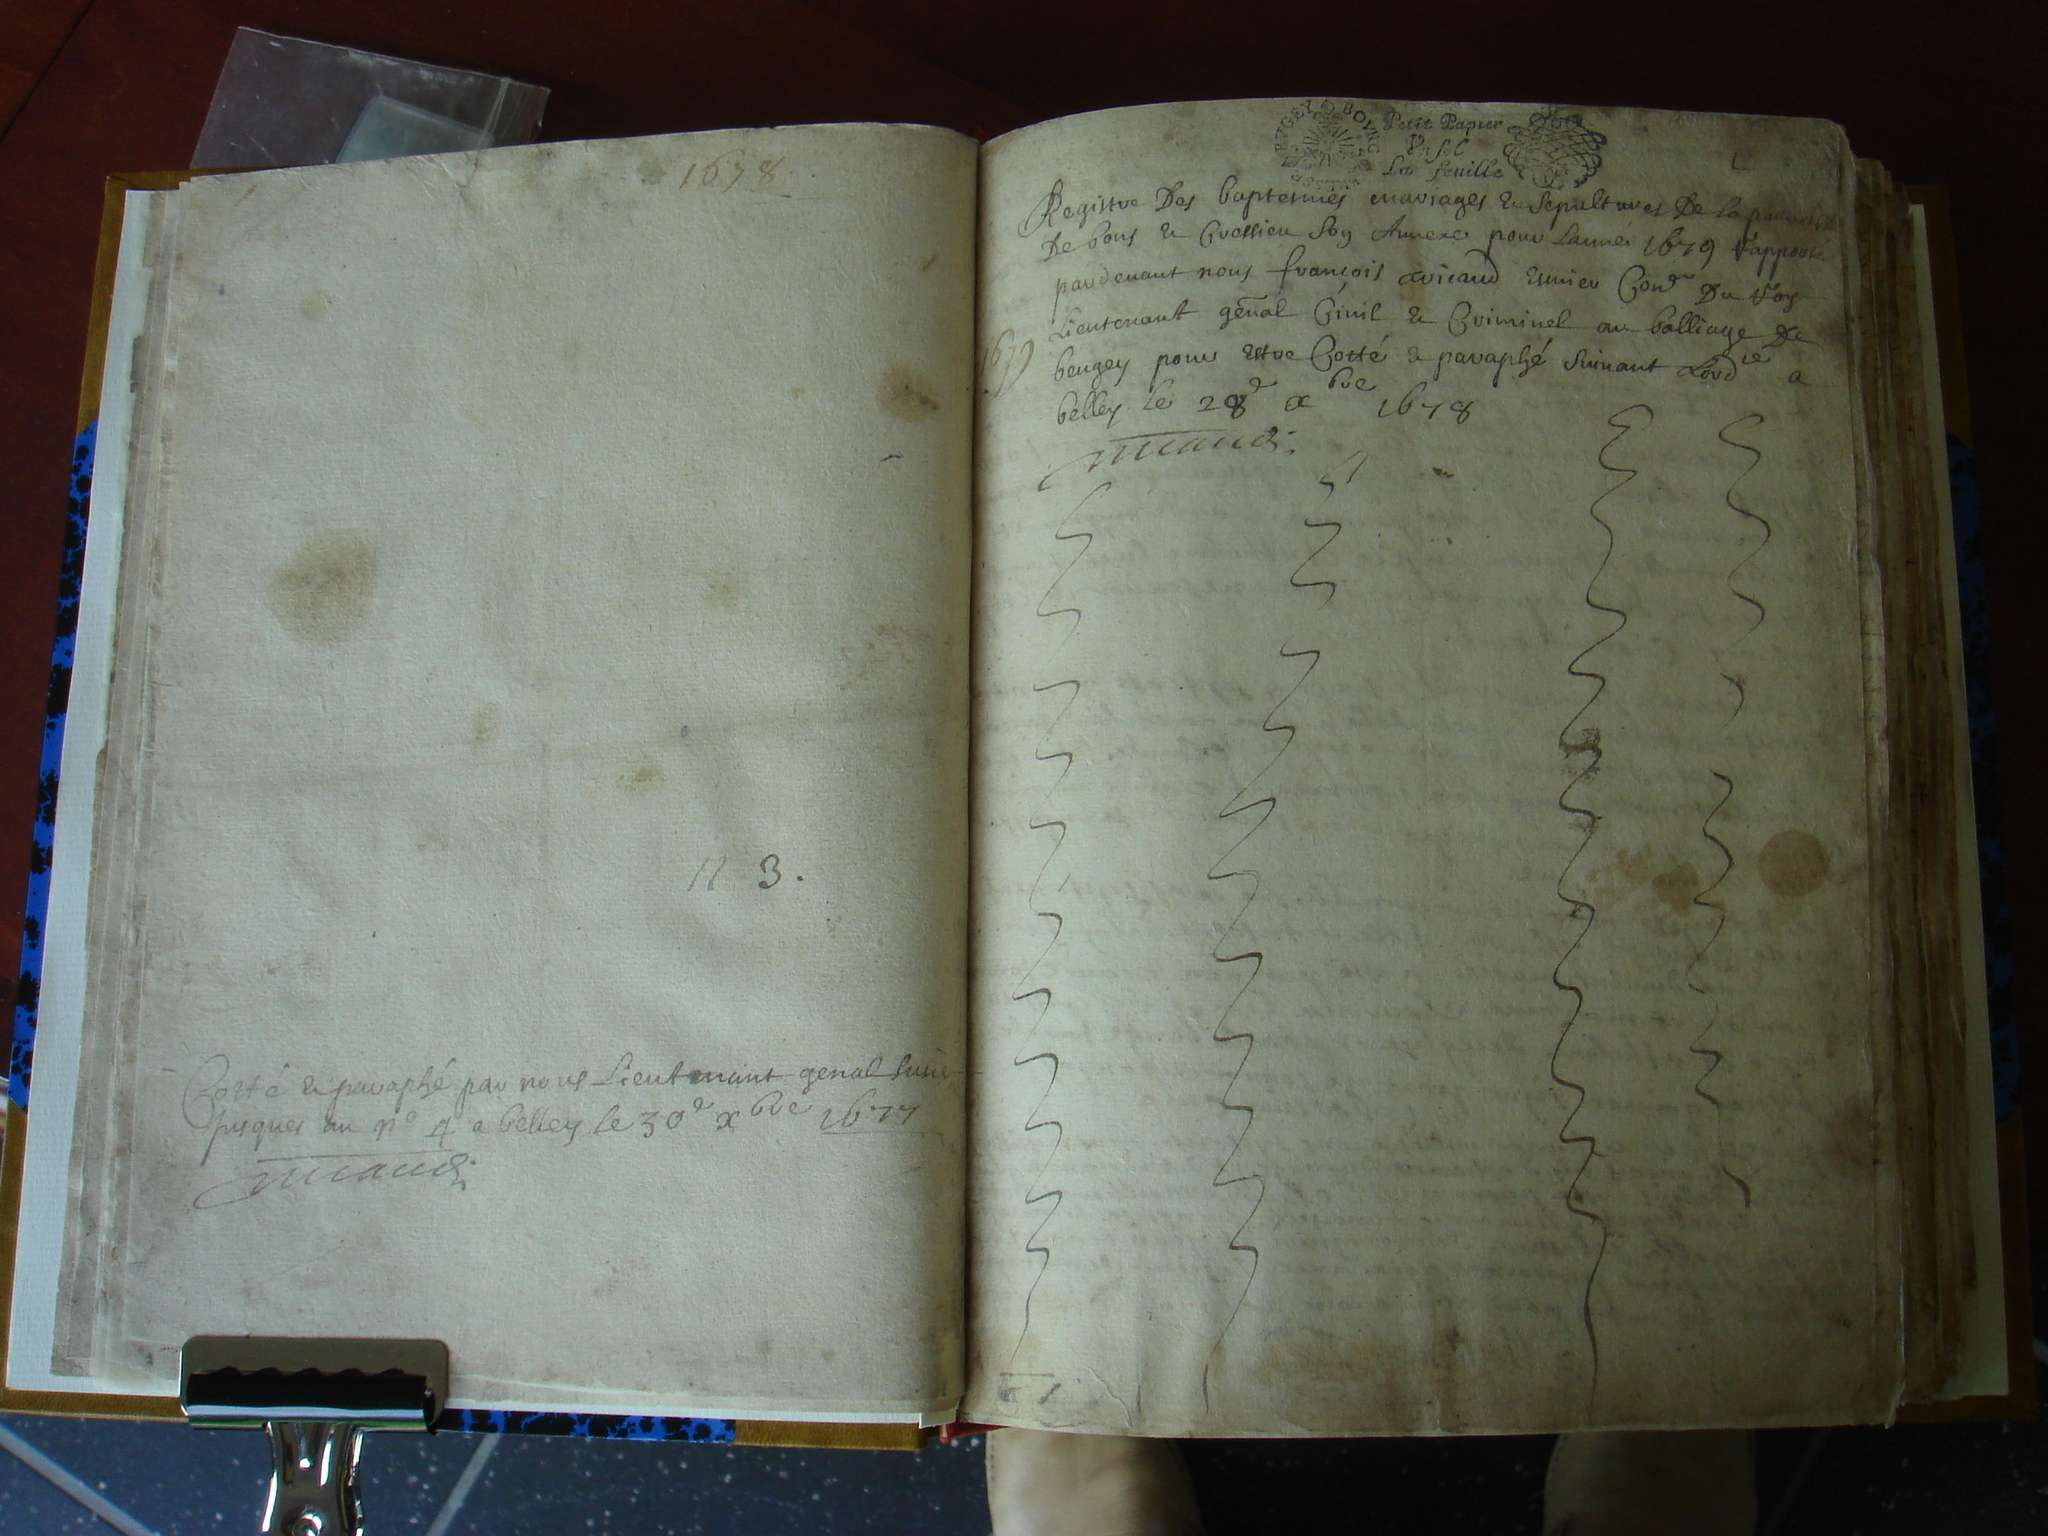 1678
N 3.
Cotté & paraphé par nous Lieutenant genal susd
jusques au n° 4 a belley le 30e xbre 1677
BVGEY BOVRG
Petit Papier
Vn sol
La feuille
Registre Des baptesmes mariages & sepultures De la parroisse
De bons & Cressieu son Annexe pour Lannée 1679 rapporté
pardevant nous françois esuier Coner Du Roy
Lieutenant genal Civil & Criminel au balliage De
beugey pour estre Cotté & paraphé suivant Lordce a
1679
belley le 28e xbre 1678
1